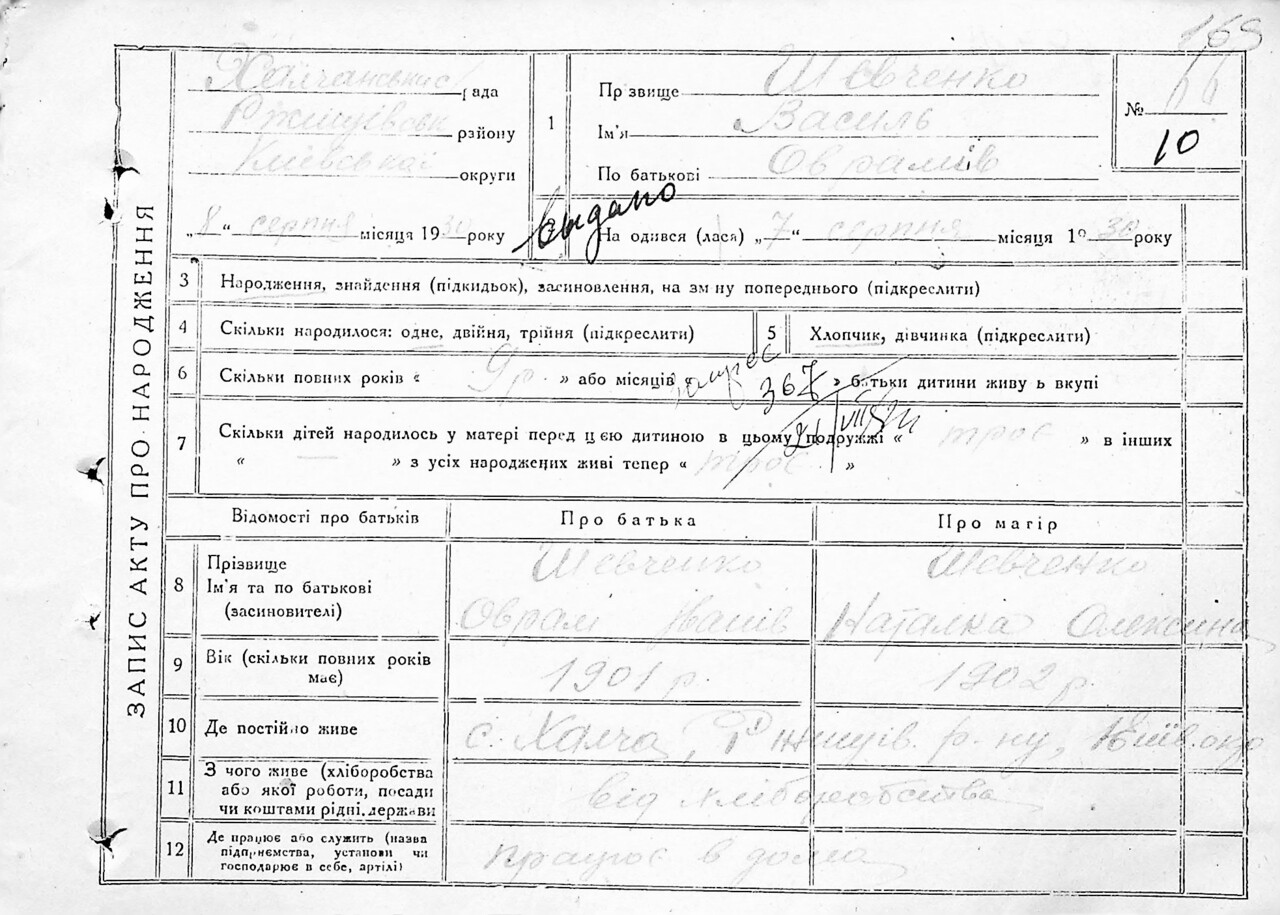 168
ЗАПИС АКТУ ПРО НАРОДЖЕННЯ
Халчанська рада
Ржищівськ району
Київської округи
„8“ серпня місяця 1930 року
1
Прізвище Шевченко
Ім'я Василь
По батькові Оврамів
№ 66
10
Выдано
Народився (лася) „7“ серпня місяця 1930 року
3 Народження, знайдення (підкидьок), засиновлення, на зміну попереднього (підкреслити)
4 Скільки народилося: одне, двійня, трійня (підкреслити)
5 Хлопчик, дівчинка (підкреслити)
6 Скільки повних років « 9 р. » або місяців « » батьки дитини живуть вкупі
367
7 Скільки дітей народилось у матері перед цією дитиною в цьому подружжі « троє » в інших
« — » з усіх народжених живі тепер « троє »
Відомості про батьків
Про батька
Про матір
8 Прізвище
Ім'я та по батькові
(засиновителі)
Шевченко
Оврам Іванів
Шевченко
Наталка Олексіївна
9 Вік (скільки повних років
має)
1901 р.
1902 р.
10 Де постійно живе
с. Халча, Ржищів. р-ну, Київ. окр
11 З чого живе (хліборобства
або якої роботи, посади
чи коштами рідні, держави
від хліборобства
12 Де працює або служить (назва
підприємства, установи чи
господарює в себе, артілі)
працює в дома